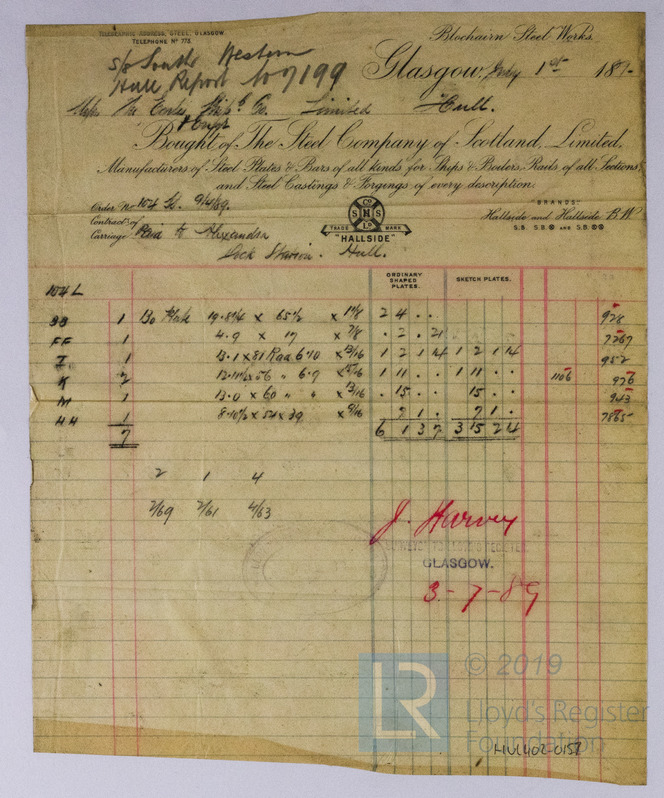 TELEGRAPHIC ADDRESS, STEEL, GLASGOW.
TELEPHONE Nº 778.
Blochairn Steel Works.
S/S South Western
Hull Report 10799
Glasgow, July 1st 188
Messrs The Earles Shipg Co. Limited Hull.
& Engr
Bought of The Steel Company of Scotland, Limited,
Manufacturers of Steel Plates & Bars of all kinds for Ships & Boilers, Rails of all Sections
and Steel Castings & Forgings of every description.
Order No 104
Contract of
Carriage Paid to Alexandra
Dock Station. Hull.
S Co H S Lo
TRADE MARK
"HALLSIDE"
"BRANDS"
Hallside and Hallside B.W
S.B. S.B.® AND S.B.®®
ORDINARY SHAPED PLATES.
SKETCH PLATES.
104 L
BB 1 Bo Plate 65½ x 1⅛ 2 4 . . 928
FF 1 4.9 x 17 x ⅞ . 2 . 21 7267
I 1 13.1 x 81 Rad 6.10 x 13/16 1 2 1 14 1 2 1 14 952
K 2 x 56 " 6.9 x 15/16 1 11 . . 1 11 . . 1106 926
M 1 13.0 x 60 " " x 13/16 . 15 . . 15 . . 943
HH 1 8.10½ x 54 x 39 x 9/16 . 7 1 . 7 1 . 7865
7 6 1 3 7 3 15 2 14
2 1 4
2/69 2/61 4/63
J. Harvey
SURVEYOR TO LLOYD'S REGISTER
GLASGOW.
3-7-89
LR
© 2019
Lloyd's Register
Foundation
HUL402-0152